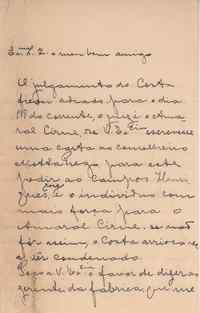 Exmo Sr. e meu bom amigo
O julgamento do Costa
ficou adiado para o dia
18 do corrente, o juiz é o Ama
ral Cirne, se V. Exia escrevesse
uma carta ao conselheiro
para este
pedir ao Campos Hen
riques, é o individuo com
mais força para o
Amaral Cirne, se não
fôr assim, o Costa arrisca-se
a ser condemnado.
Peço a V. Exia o favor de dizer ao
gerente da fabrica, que me